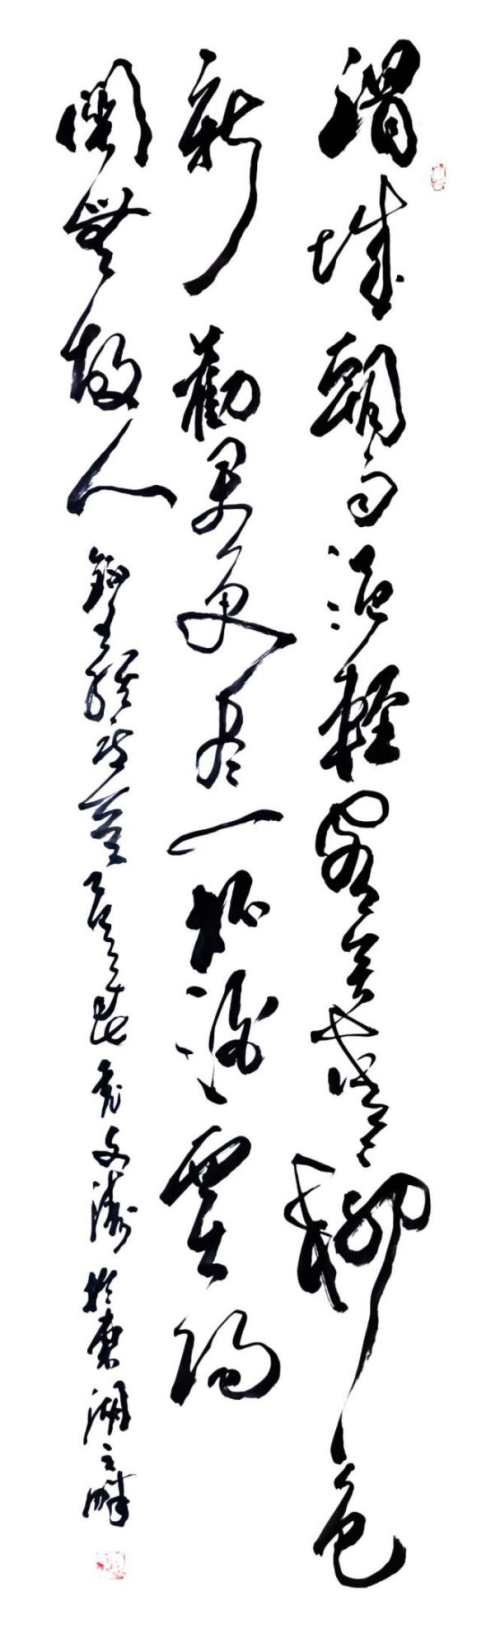 渭城朝雨浥輕塵客舍青青柳色
新勸君更盡一杯酒西出陽
關無故人 文濤於東湖之畔